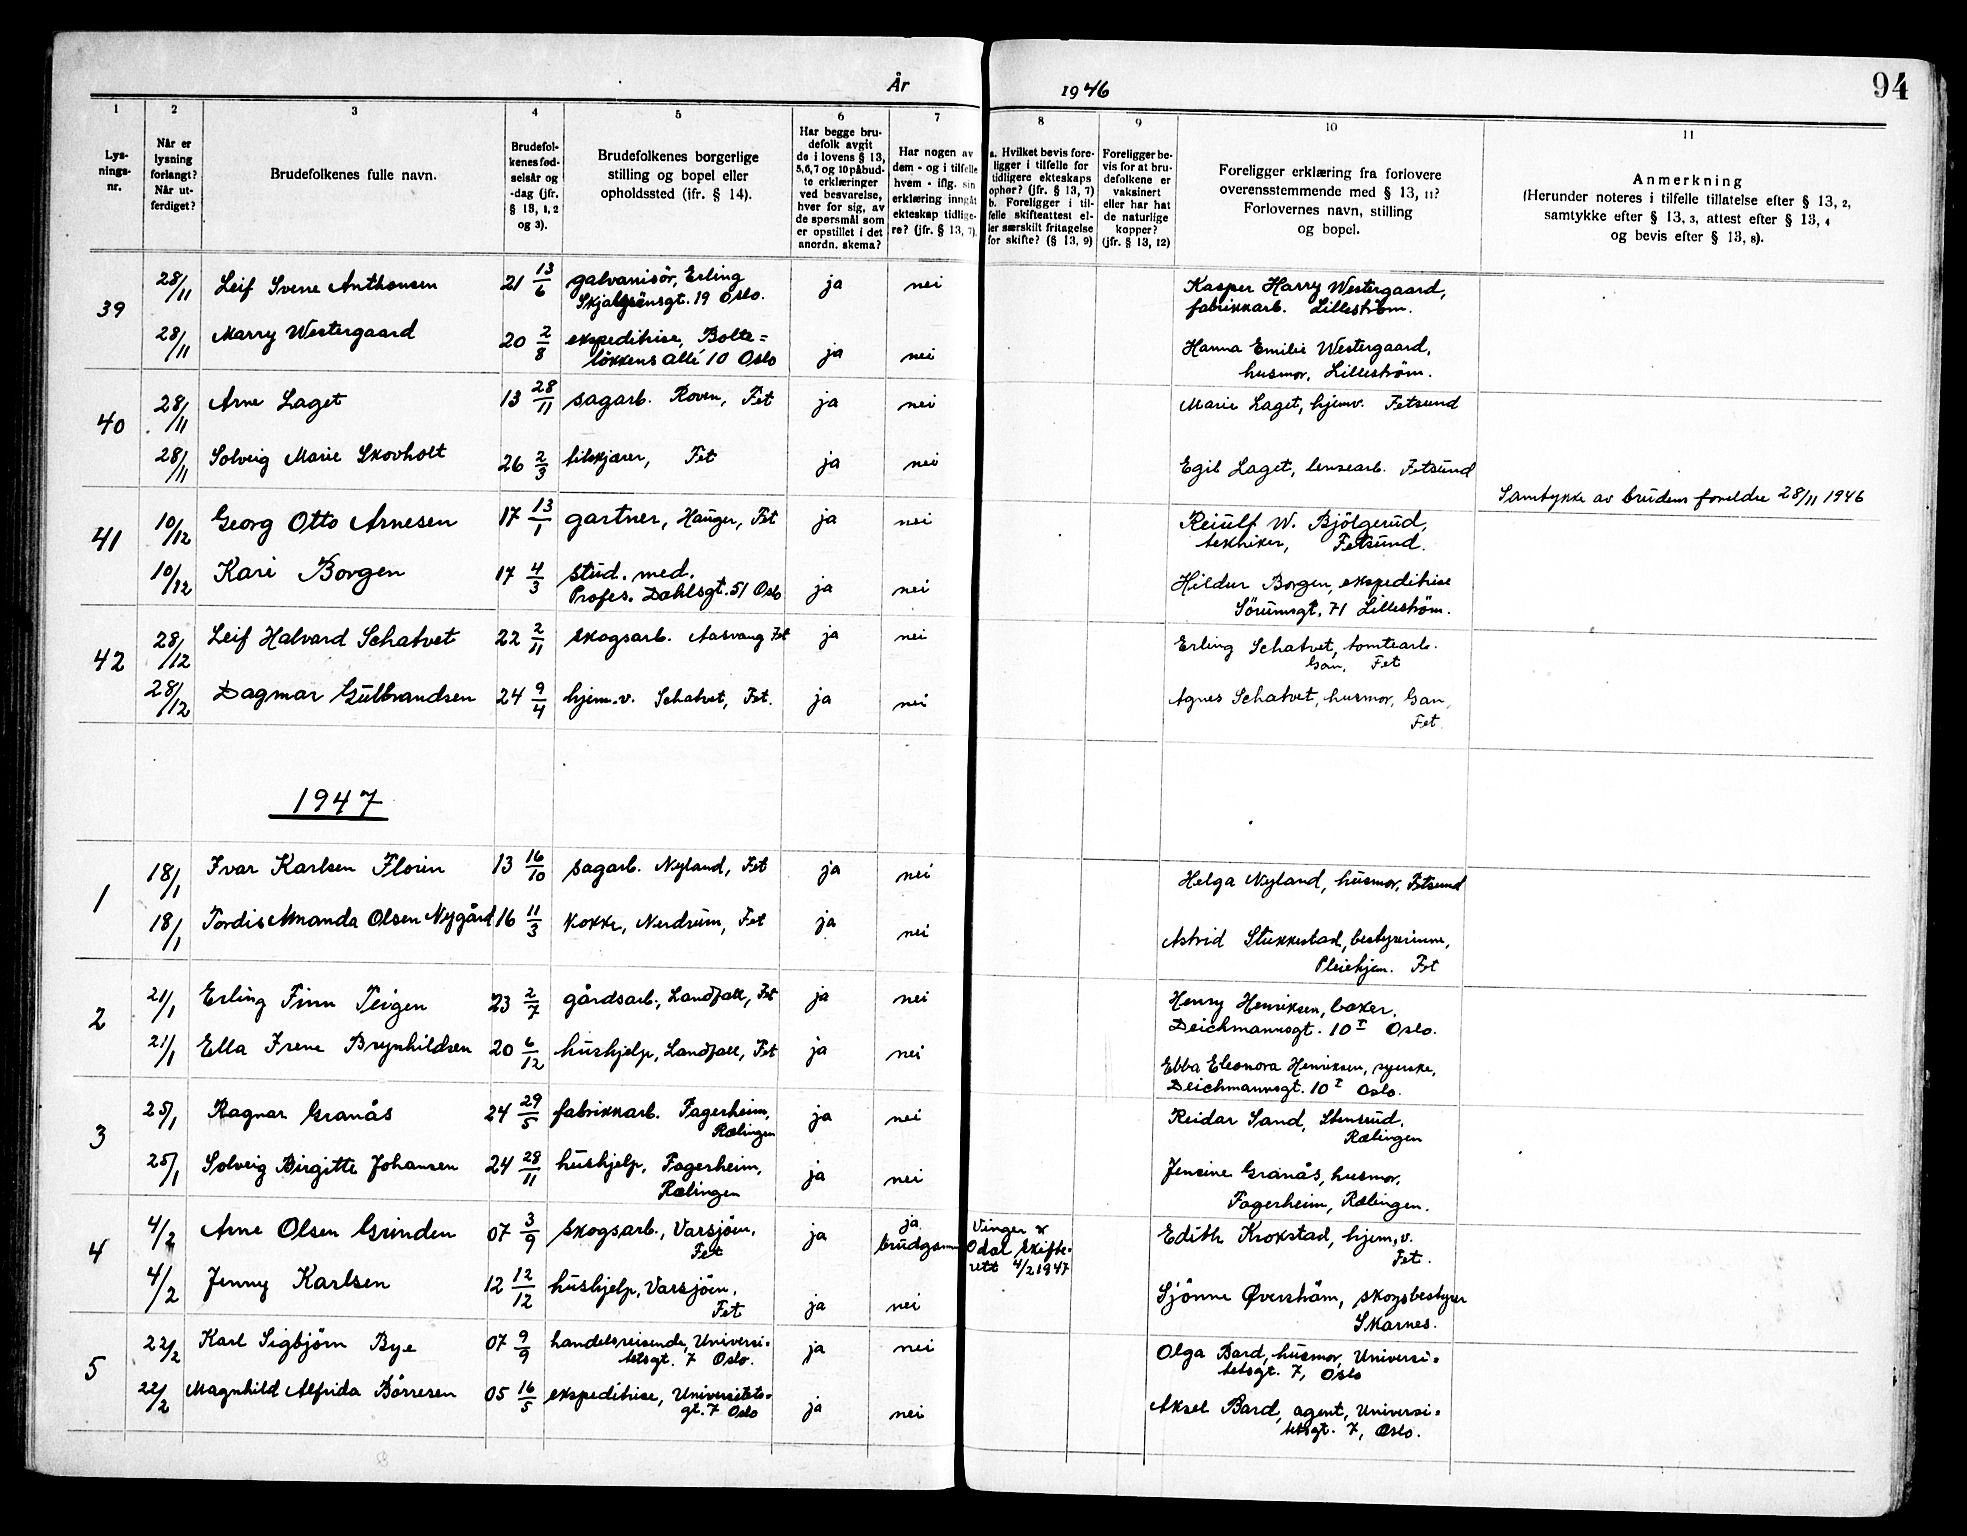 År 1946
94
1 2 3 4 5 6 7 8 9 10 11
Lys-
nings-
nr.
Når er
lysning
forlangt?
Når ut-
ferdiget?
Brudefolkenes fulle navn.
Brudefol-
kenes fød-
selsår og
-dag (jfr.
§ 13, 1, 2
og 3).
Brudefolkenes borgerlige
stilling og bopel eller
opholdssted (ifr. § 14).
Har begge bru-
defolk avgit
de i lovens § 13,
5,6,7 og 10 påbud-
te erklæringer
ved besvarelse,
hver for sig, av
de spørsmål som
er opstillet i det
anordn. skema?
Har nogen av
dem - og i tilfelle
hvem - iflg. sin
erklæring inngåt
ekteskap tidlige-
re? (jfr. § 13, 7).
a. Hvilket bevis fore-
ligger i tilfelle for
tidligere ekteskaps
ophør? (jfr. § 13, 7)
b. Foreligger i til-
felle skifteattest el-
ler særskilt fritagelse
for skifte? (§ 13, 9)
Foreligger be-
vis for at bru-
defolkene er
vaksinert
eller har hat
de naturlige
kopper?
(jfr. § 13, 12)
Foreligger erklæring fra forlovere
overensstemmende med § 13, 11?
Forlovernes navn, stilling
og bopel.
Anmerkning
(Herunder noteres i tilfelle tillatelse efter § 13, 2,
samtykke efter § 13, 3, attest efter § 13, 4
og bevis efter § 13, 8).
39 28/11 Leif Svene Anthonsen 21 13/6 galvanisör, Erling ja nei Kasper Harry Westergaard,
Skjalgsönsgt. 19 Oslo. fabrikkarb. Lilleström.
28/11 Marry Westergaard 20 2/8 ekspeditrise, Bolte= ja nei Hanna Emilie Westergaard,
løkkens allé 10 Oslo husmor, Lilleström.
40 28/11 Arne Laget 13 28/11 sagarb. Roven, Fet ja nei Marie Laget, hjemv. Fetsund
28/11 Solveig Marie Skovholt 26 2/3 tilskjærer, Fet ja nei Egil Laget, lensearb. Fetsund
Samtykke av brudens foreldre 28/11 1946
41 10/12 Georg Otto Arnesen 17 13/1 gartner, Hauger, Fet ja nei Reiulf W. Bjölgerud,
tekniker, Fetsund.
10/12 Kari Borgen 17 4/3 stud. med. ja nei Hildur Borgen, ekspeditrise
Profes. Dahlsgt. 51 Oslo Sörumsgt. 71 Lilleström.
42 28/12 Leif Halvard Schatvet 22 2/11 skogsarb. Aasvang Fet ja nei Erling Schatvet, tomtearb.
Gan, Fet
28/12 Dagmar Gulbrandsen 24 9/4 hjem.v. Schatvet, Fet. ja nei Agnes Schatvet, husmor, Gan,
Fet.
1947
1 18/1 Ivar Karlsen Florin 13 16/10 sagarb. Nyland, Fet ja nei Helga Nyland, husmor, Fetsund
18/1 Tordis Amanda Olsen Nygård 16 11/3 kokke, Nerdrum, Fet ja nei Astrid Stukkestad, bestyrerinne,
Pleiehjem. Fet
2 21/1 Erling Finn Teigen 23 2/7 gårdsarb., Landfall, Fet ja nei Henry Henriksen, baker.
Deichmannsgt. 10 I Oslo.
21/1 Ella Irene Brynhildsen 20 6/12 hushjelp, Landfall, Fet ja nei Ebba Eleonora Henriksen, syerske,
Deichmannsgt. 10 I Oslo.
3 25/1 Ragnar Granås 24 29/5 fabrikkarb. Fagerheim, ja nei Reidar Sand, Stensrud,
Rælingen Rælingen
25/1 Solveig Birgitte Johansen 24 28/11 hushjelp, Fagerheim, ja nei Jensine Granås, husmor,
Rælingen Fagerheim, Rælingen.
4 4/2 Arne Olsen Grinden 07 3/9 skogsarb., Varsjöen, ja ja Vinger & Edith Krokstad, hjem.v.
Fet brudgommen Odal skifte- Fet.
rett 4/2 1947
4/2 Jenny Karlsen 12 12/12 hushjelp, Varsjöen, ja nei Sjönne Øverström, skogsbestyrer
Fet Skarnes.
5 22/2 Karl Sigbjörn Bye 07 9/9 handelsreisende, Universi- ja nei Olga Bard, husmor, Universi-
tetsgt. 7 Oslo. tetsgt. 7, Oslo
22/2 Magnhild Alfrida Börresen 05 16/5 ekspeditrise, Universitets- ja nei Aksel Bard, agent, Universi-
gt. 7 Oslo tetsgt. 7, Oslo.